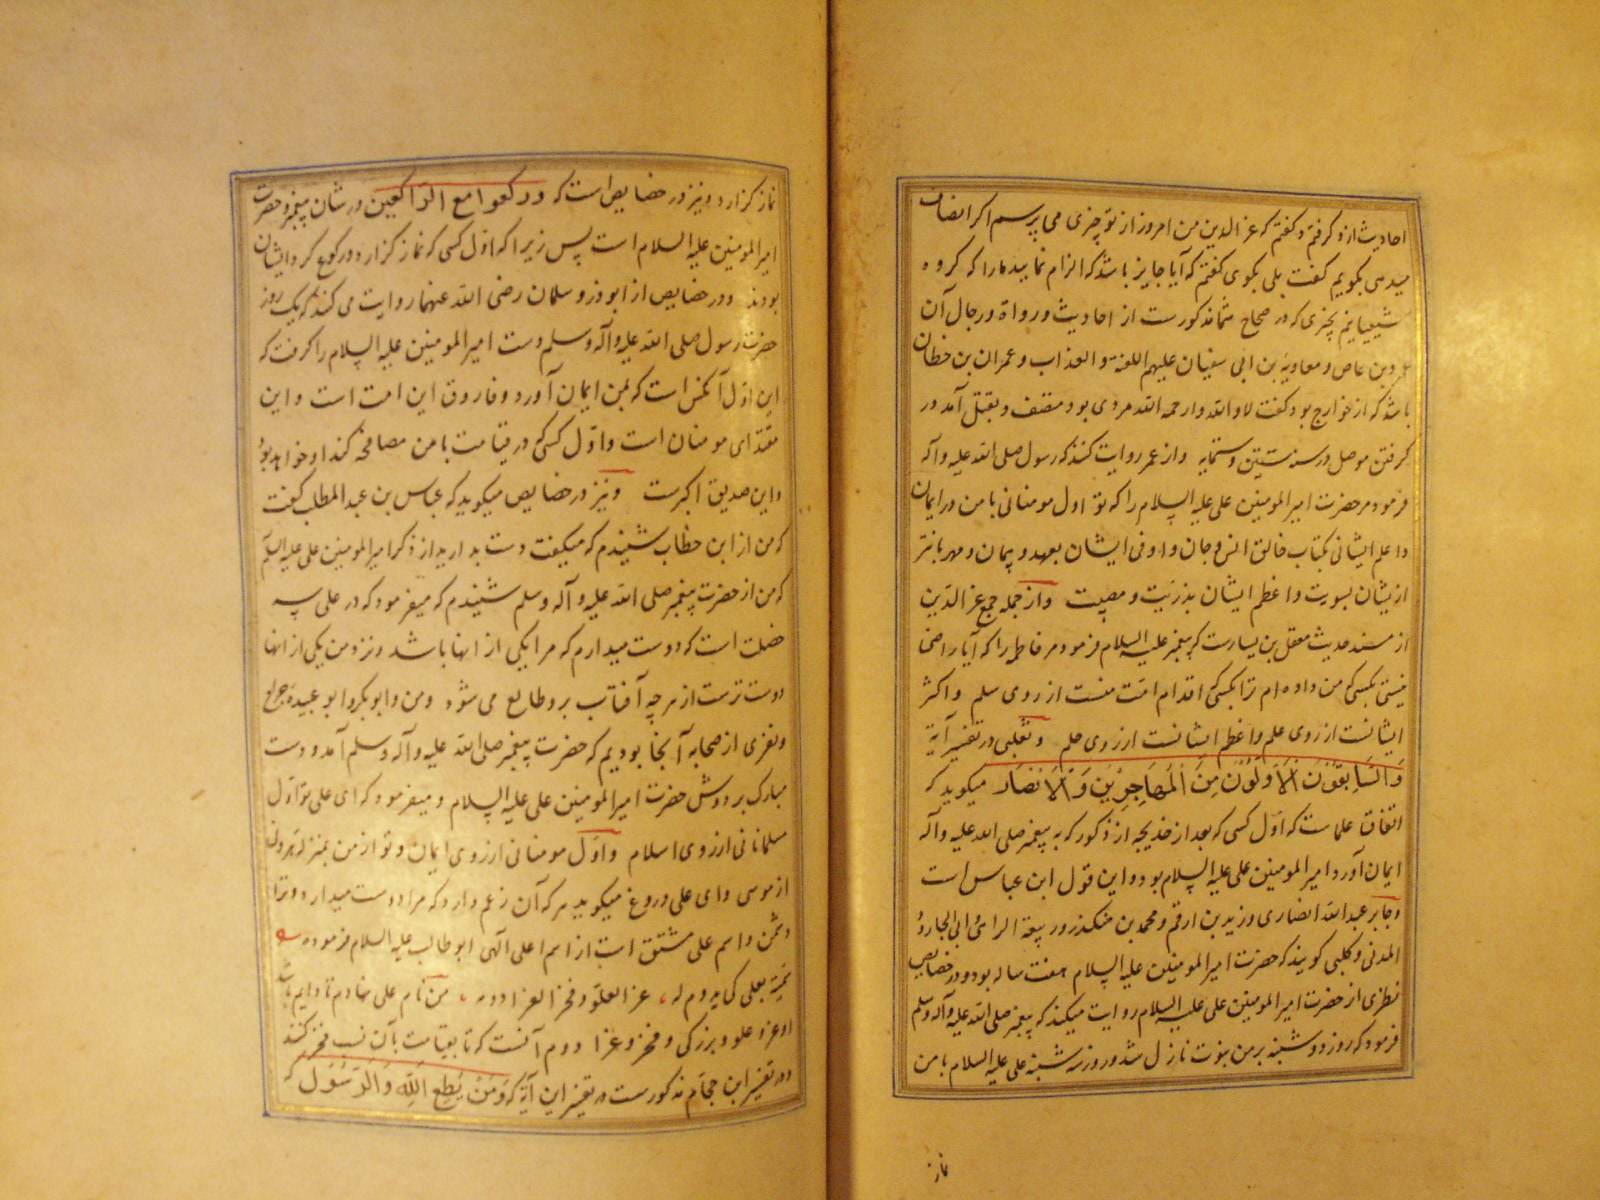 احادیث ازو کرفتم و کفتم که عز الدین من امروز از تو چیزی می پرسم اکر انصاف
میدهی بکویم کفت بلی بکوی کفتم که آیا جایز باشد که الزام نمایید مارا که کروه
شیعیانیم بچیزی که در صحاح شما مذکورست از احادیث و رواة و رجال آن
عمرو بن عاص و معاویة بن ابی سفیان علیهم اللعنة و العذاب و عمران بن حطان
باشد که از خوارج بود کفت لا والله وارحمه الله مردی بود منصف و بقتل آمد در
کرفتن موصل در سنه ستین و ستمایه وا ز عمر روایت کنند که رسول صلی الله علیه وآله
فرمود مر حضرت امیر المومنین علی علیه السلام را که تو اول مومنانی با من در ایمان
و اعلم ایشانی بکتاب خالق انس و جان و اوفی ایشان بعهد و پیمان و مهربانتر
از یشان بسویت و اعظم ایشان بذریت و مصیبت وازجمله جمع عز الدین
از مسند حدیث معقل بن یسارست که پیغمبر علیه السلام فرمود مر فاطمه را که آیا راضی
نیستی بکسی که من داده ام ترا بکسی که اقدام امّت منست از روی سلم و اکثر
ایشانست از روی علم و اعظم ایشانست از روی حلم و ثعلبی در تفسیر آیة
وَالسَّابِقُوْنَ الْاَوَلُوْنَ مِنَ الْمُهَاجِرِیْنَ وَالْاَنْصَارِ میکوید که
اتفاق علماست که اوّل کسی که بعد از خدیجه از ذکور که به پیغمبر صلی الله علیه وآله
ایمان آورد امیر المومنین علی علیه السلام بود و این قول ابن عباس است
و جابر عبدالله انصاری و زید بن ارقم و محمد بن منکدر و ربیعة الرائ و ابی الجارود
المدنی و کلبی کویند که حضرت امیر المومنین علیه السلام هفت ساله بود و در خصایص
نطنزی از حضرت امیر المومنین علی علیه السلام روایت میکند که پیغمبر صلی الله علیه وآله وسلم
فرمود که روز دوشنبه بر من نبوت نازل شد و روز سه شنبه علی علیه السلام با من
نماز
نماز کزارد و نیز در خصایص است که وارکعوا مع الراکعین در شان پیغمبر و حضرت
امیر المومنین علیه السلام است پس زیرا که اوّل کسی که نماز کزارد و رکوع کرد ایشان
بودند و در خصایص از ابوذر و سلمان رضی الله عنهما روایت می کند که یک روز
حضرت رسول صلی الله علیه وآله وسلم دست امیر المومنین علیه السلام را کرفت که
این اوّل آنکس است که بمن ایمان آورد و فاروق این امت است و این
مقتدای مومنان است و اوّل کسی که در قیامت با من مصافحه کند او خواهد بود
و این صدیق اکبرست و نیز در خصایص میکوید که عباس بن عبد المطلب کفت
که من از ابن خطاب شنیدم که میکفت دست بدارید از ذکر امیر المومنین علی علیه السلام
که من از حضرت پیغمبر صلی الله علیه وآله وسلم شنیدم که میفرمود که در علی سه
خصلت است که دوست میدارم که مرا یکی از انها باشد و نزد من یکی از انها
دوست ترست از هر چه آفتاب برو طالع می شود و من و ابوبکر و ابو عبیدة جراح
و نفری از صحابه آنجا بودیم که حضرت پیغمبر صلی الله علیه وآله وسلم آمد و دست
مبارک بر دوش حضرت امیر المومنین علی علیه السلام و میفرمود که ای علی تو اوّل
مسلمانانی از روی اسلام و اوّل مومنانی از روی ایمان و تو از من بمنزلة هرونی
از موسی و ای علی دروغ میکوید هر که آن زعم دارد که مرا دوست میدارد و ترا
دشمن و اسم علی مشتق است از اسم اعلی الهی ابو طالب علیه السلام فرموده
سمیته بعلی کی یدوم له عز العلو و فخر العز ادومه من نام علی نهادم تا دایم باشد
او عزّ علو و بزرکی و فخر و عزّ ادوم آنست که تا بقیامت بآن نسب فخر کنند
و در تفسیر ابن حجام مذکورست در تفسیر این آیة که وَمَنْ یُطِعِ اللهَ وَالرَّسُوْلَ که